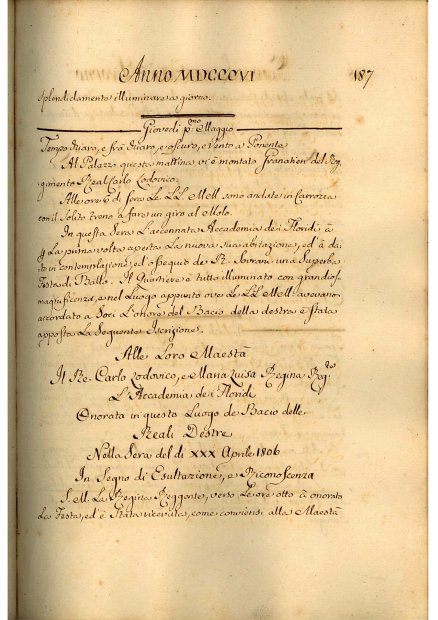 Anno MDCCCVI 187
splendidamente illuminata a giorno.
Giovedì p:mo Maggio
Tempo chiaro, e frà chiaro, e oscuro, e Vento a Ponente
Al Palazzo questa mattina vi è montato Granatieri del Reg-
gimento Real Carlo Lodovico.
Alle ore 6 di sera Le LL. MM. sono andate in Carrozza
con il Solito treno a fare un giro al Molo.
In questa Sera L'accennata Accademia de i Floridi à
La prima volta aperta La nuova sua abitazione, ed à da-
to in contemplazione, ed ossequio de R. Sovrani una Superba
Festa di Ballo. Il Quartiere è tutto illuminato con grandios.
magnificenza, e nel Luogo appunto ove Le LL. MM. avevano
accordato a Soci L'onore del Bacio della destra è stata
apposta La Seguente Iscrizione.
Alle Loro Maestà
Il Re Carlo Lodovico, e Maria Luisa Regina Reg.te
L'Accademia de i Floridi
Onorata in questo Luogo de Bacio delle
Reali Destre
Nella Sera del dì XXX Aprile 1806
In Segno di Esultazione, e Riconoscenza
S. M. La Regina Reggente, verso Le ore otto à onorato
La Festa, ed è Stata ricevuta, come conviensi alla Maestà